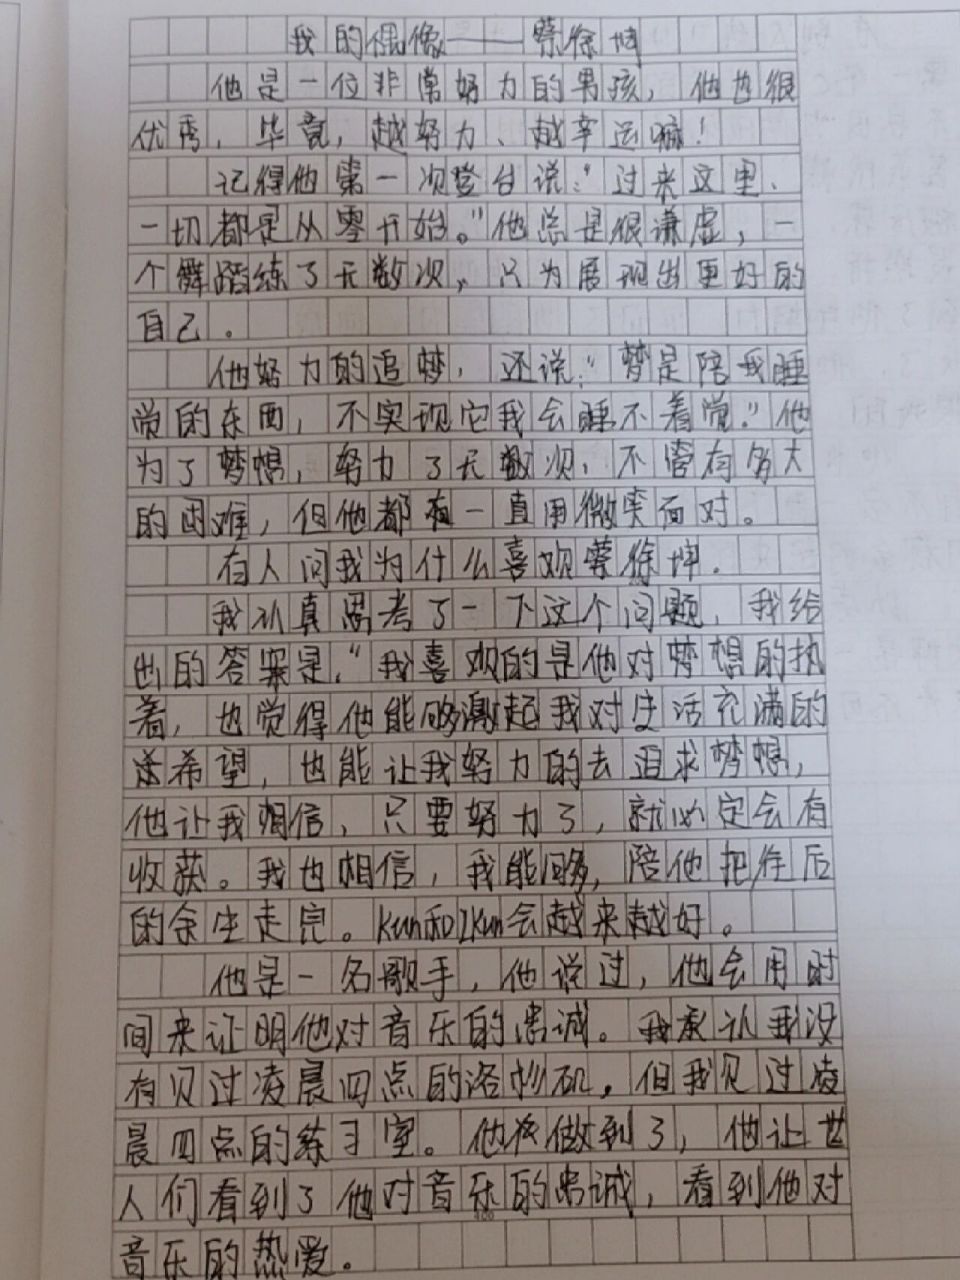 我的偶像——蔡徐坤
他是一位非常努力的男孩，他也很
优秀，毕竟，越努力、越幸运嘛！
记得他第一次登台说：“过来这里、
一切都是从零开始。”他总是很谦虚，一
个舞蹈练了无数次，只为展现出更好的
自己。
他努力的追梦，还说：“梦是陪我睡
觉的东西，不实现它我会睡不着觉。”他
为了梦想，努力了无数次，不管有多大
的困难，但他都有一直用微笑面对。
有人问我为什么喜欢蔡徐坤.
我认真思考了一下这个问题，我给
出的答案是：“我喜欢的是他对梦想的执
着，也觉得他能够激起我对生活充满的
希望，也能让我努力的去追求梦想，
他让我相信，只要努力了，就必定会有
收获。我也相信，我能够，陪他把往后
的余生走完。Kun和IKun会越来越好。
他是一名歌手，他说过，他会用时
间来证明他对音乐的忠诚。我承认我没
有见过凌晨四点的洛杉矶，但我见过凌
晨四点的练习室。他做到了，他让世
人们看到了他对音乐的忠诚，看到他对
400
音乐的热爱。